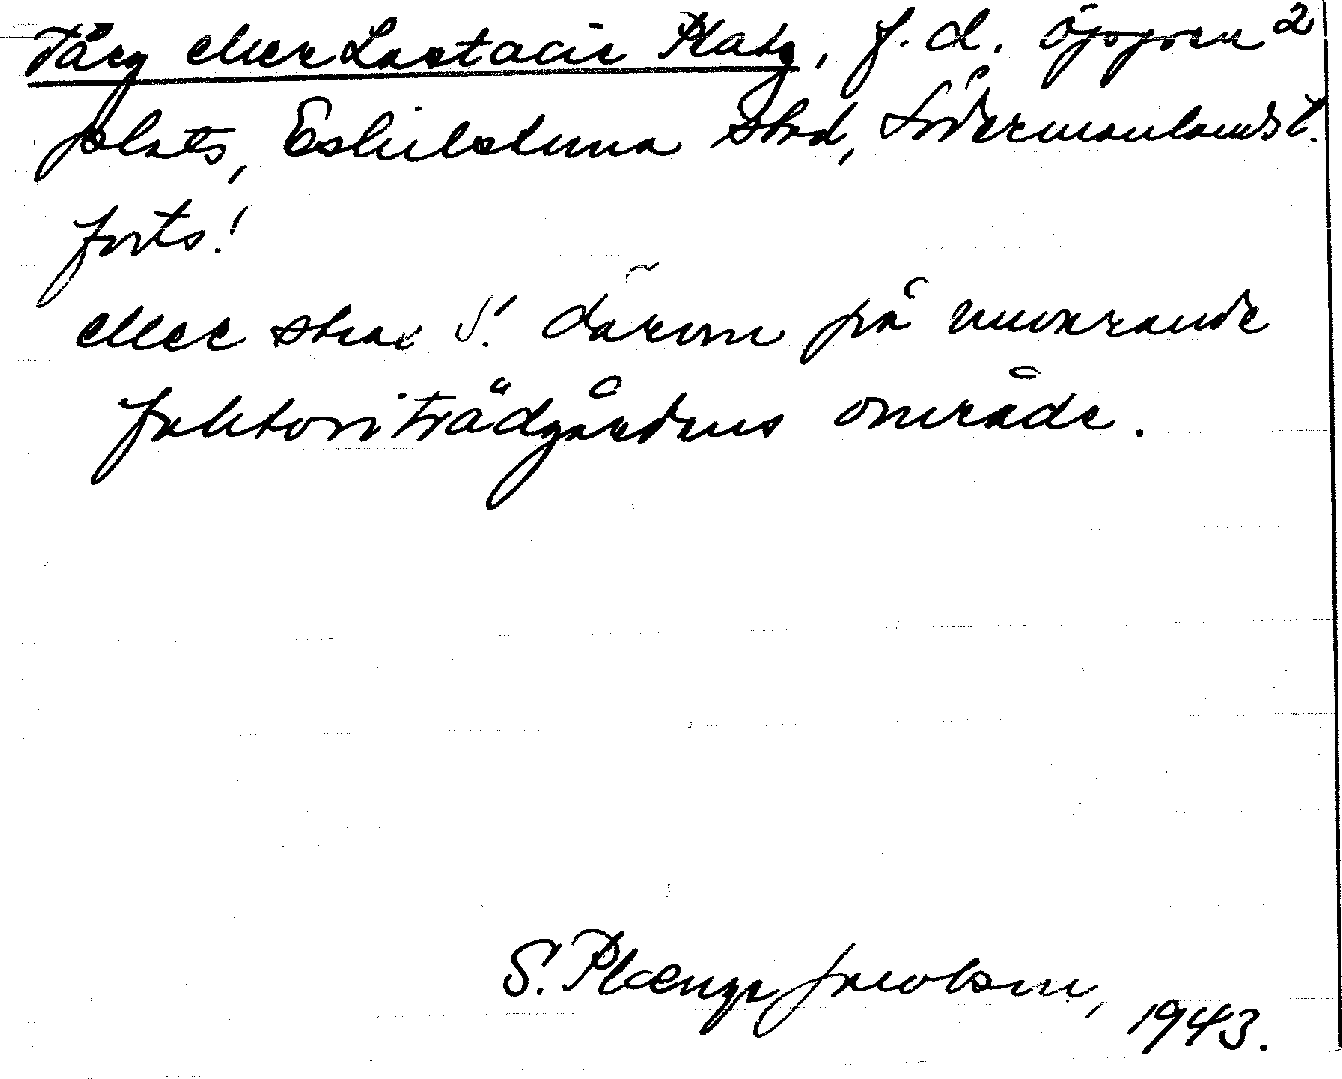 Tårg eller Lastacie Platz, f. d. öppen 2
plats, Eskilstuna stad, Södermanlands l.
forts!
eller strax S. därom på nuvarande
faktoriträdgårdens område.
S. Plænge Jacobson,
1943.